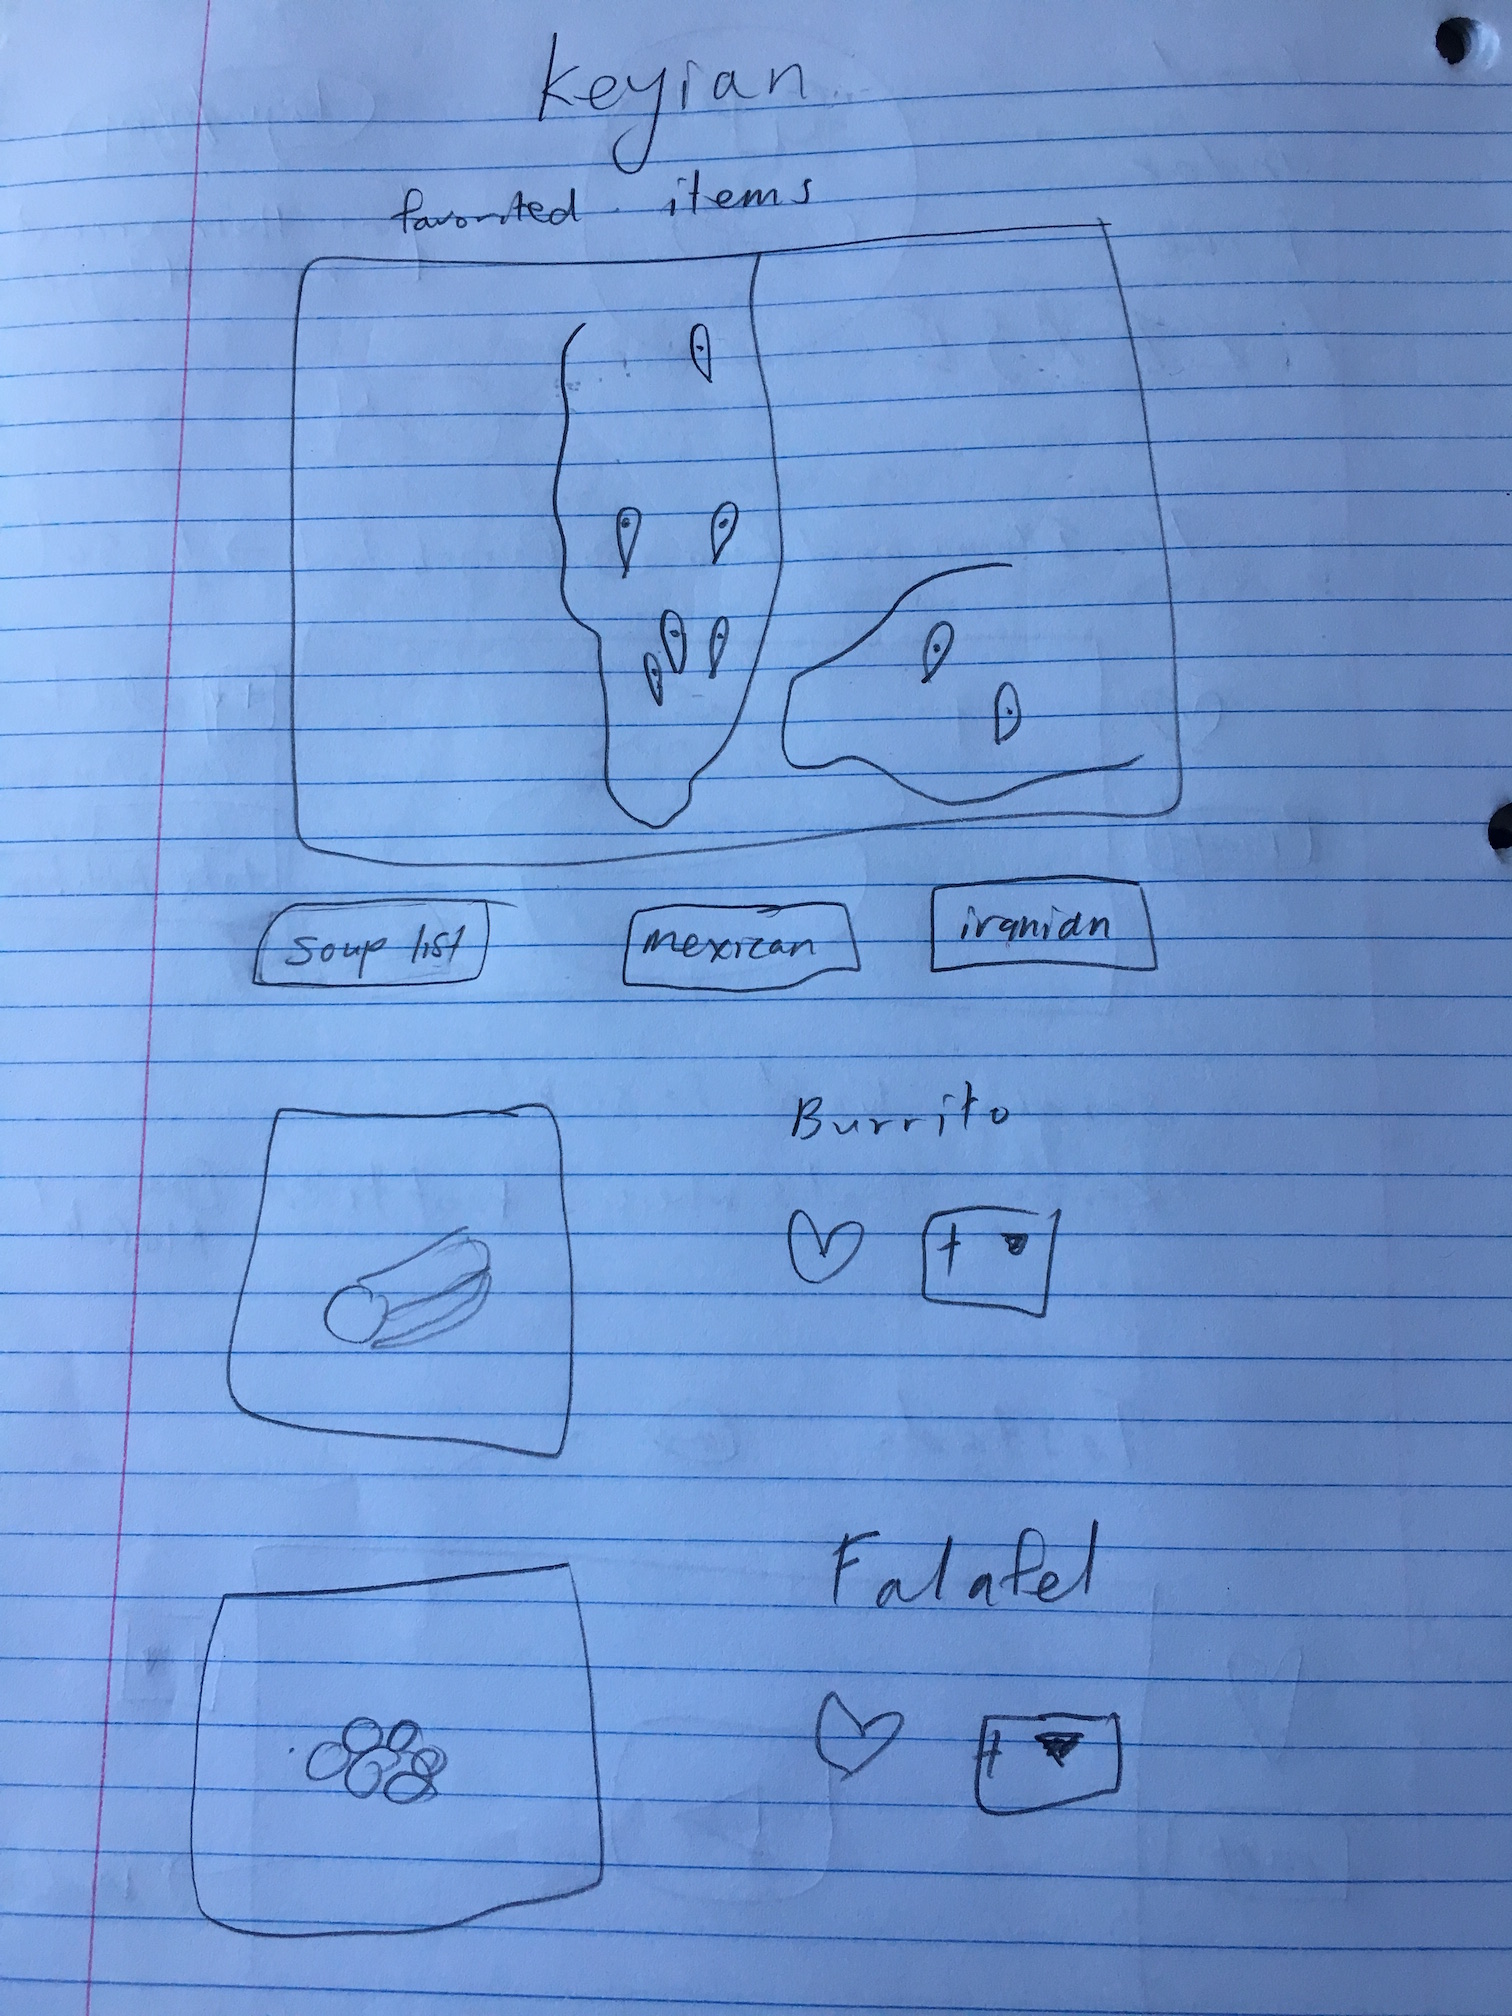 Keyian
favorited items
Soup list
mexican
iranian
Burrito
+
Falafel
+